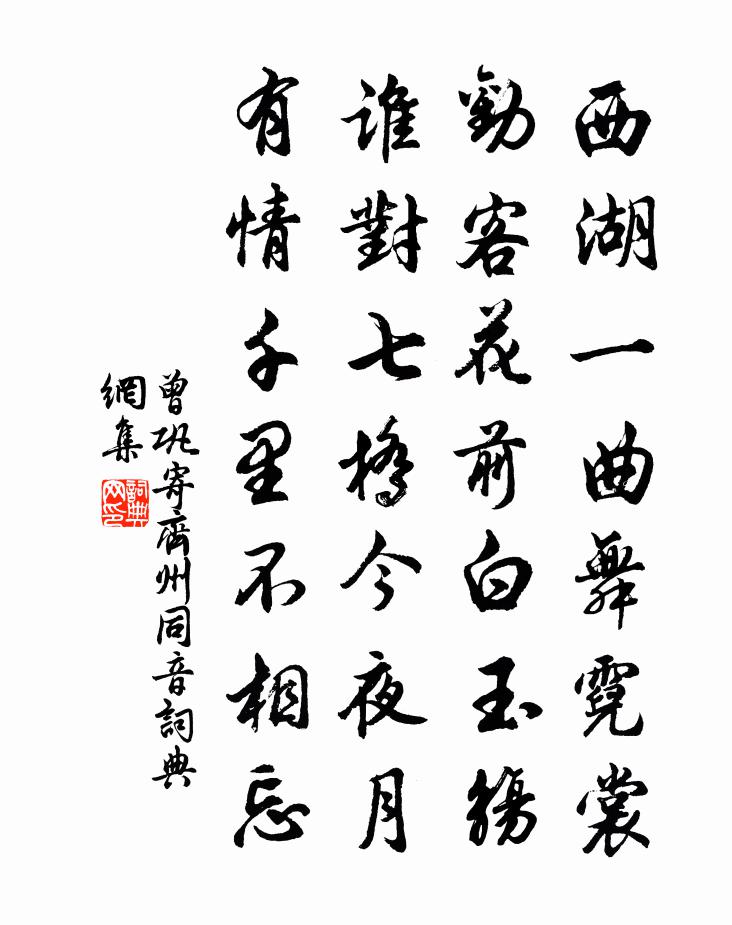 西湖一曲舞霓裳
勸客花前白玉觴
誰對七橋今夜月
有情千里不相忘
曾巩寄齊州同音詞典
網集
詞典
网印